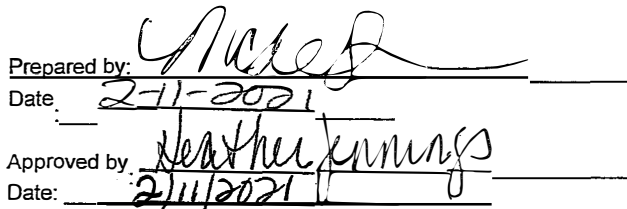 Prepared by:
Date 2-11-2021
Approved by Heather Jennings
Date: 2/11/2021